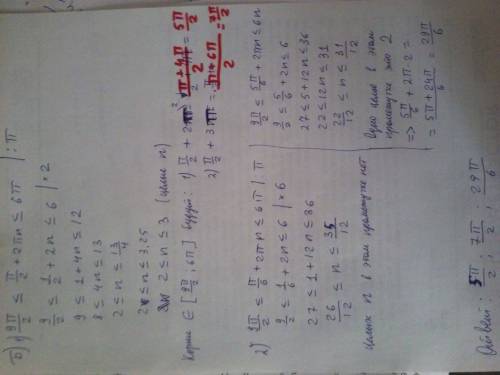 б) 1) 9π/2 ≤ π/2 + 2πn ≤ 6π | : π
9/2 ≤ 1/2 + 2n ≤ 6 | × 2
9 ≤ 1 + 4n ≤ 12
8 ≤ 4n ≤ 13
2 ≤ n ≤ 13/4
2 ≤ n ≤ 3,25
2 ≤ n ≤ 3 (целые n)
Корни ∈ [9π/2; 6π] будут: 1) π/2 + 2 π+4π/2 = 5π/2
2) π/2 + 3 π+6π/2 = 7π/2
2) 9π/2 ≤ π/6 + 2πn ≤ 6π | : π
9/2 ≤ 1/6 + 2n ≤ 6 | × 6
27 ≤ 1 + 12n ≤ 36
26/12 ≤ n ≤ 35/12
целых n в этом промежутке нет
9π/2 ≤ 5π/6 + 2πn ≤ 6π
9/2 ≤ 5/6 + 2n ≤ 6
27 ≤ 5 + 12n ≤ 36
22 ≤ 12n ≤ 31
22/12 ≤ n ≤ 31/12
Одно целое в этом
промежутке это 2
=> 5π/6 + 2π·2 =
= 5π+24π/6 = 29π/6
Ответ: 5π/2; 7π/2; 29π/6